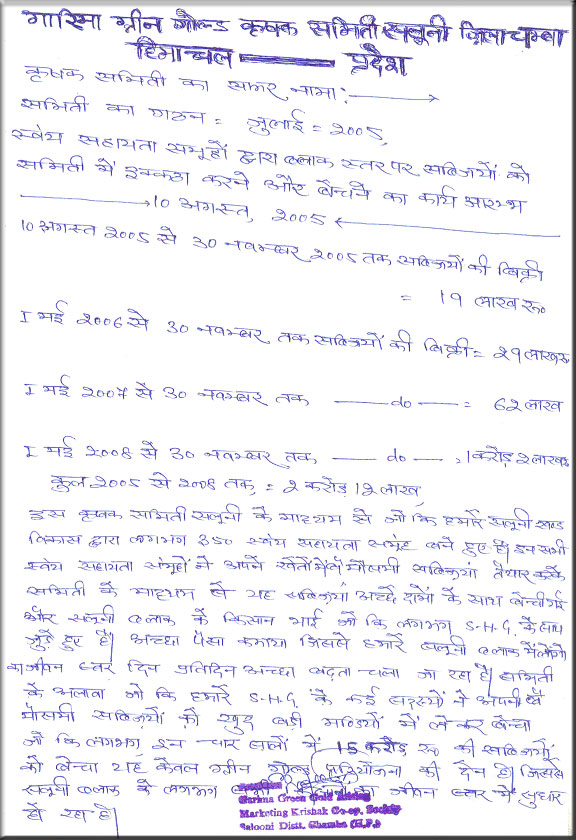 गरिमा ग्रीन गोल्ड कृषक समिति सलूनी ज़िला चम्बा
हिमाचल ——— प्रदेश
कृषक समिति का सफर नामा: ———→
समिति का गठन = जुलाई = 2005,
स्वंय सहायता समूहों द्वारा ब्लाक स्तर पर सब्जियों को
समिति में इक्कठा करने और बेंचने का कार्य आरम्भ
———→ 10 अगस्त, 2005 ←———
10 अगस्त 2005 से 30 नवम्बर 2005 तक सब्जियों की बिक्री
= 19 लाख रू०
I मई 2006 से 30 नवम्बर तक सब्जियों की बिक्री = 29 लाख रू
I मई 2007 से 30 नवम्बर तक —— do —— = 62 लाख
I मई 2008 से 30 नवम्बर तक, —— do ——, 1 करोड़ 2 लाख
कुल 2005 से 2008 तक, = 2 करोड़ 12 लाख,
इस कृषक समिति सलूनी के माध्यम से जो कि हमारे सलूनी खण्ड
विकास द्वारा लगभग 350 स्वंय सहायता समूह बने हुए हैं। इन सभी
स्वंय सहायता समूहों ने अपने खेतों में बेमौसमी सब्जियां तैयार करके
समिति के माध्यम से यह सब्जियां अच्छे दामों के साथ बेन्ची गई
और सलूनी ब्लाक के किसान भाई जो कि लगभग S.H.G. के साथ
जुड़े हुए हैं। अच्छा पैसा कमाया जिससे हमारे सलूनी ब्लाक में लोगों
का जीवन स्तर दिन प्रतिदिन अच्छा बढ़ता चला जा रहा है। समिति
के अलावा जो कि हमारे S.H.G. के कई सदस्यों ने अपनी बे
मौसमी सब्जियों को खुद बड़ी मण्डियों में ले कर बेन्चा
जो कि लगभग इन चार सालों में 15 करोड़ रू० की सब्जियों
को बेन्चा यह केवल ग्रीन गोल्ड परियोजना की देन है। जिससे
सलूनी ब्लाक के लगभग जीवन स्तर में सुधार
हो रहा है।
Garima Green Gold
Marketing Krishak Co-op. Society
Salooni Distt. Chamba (H.P.)